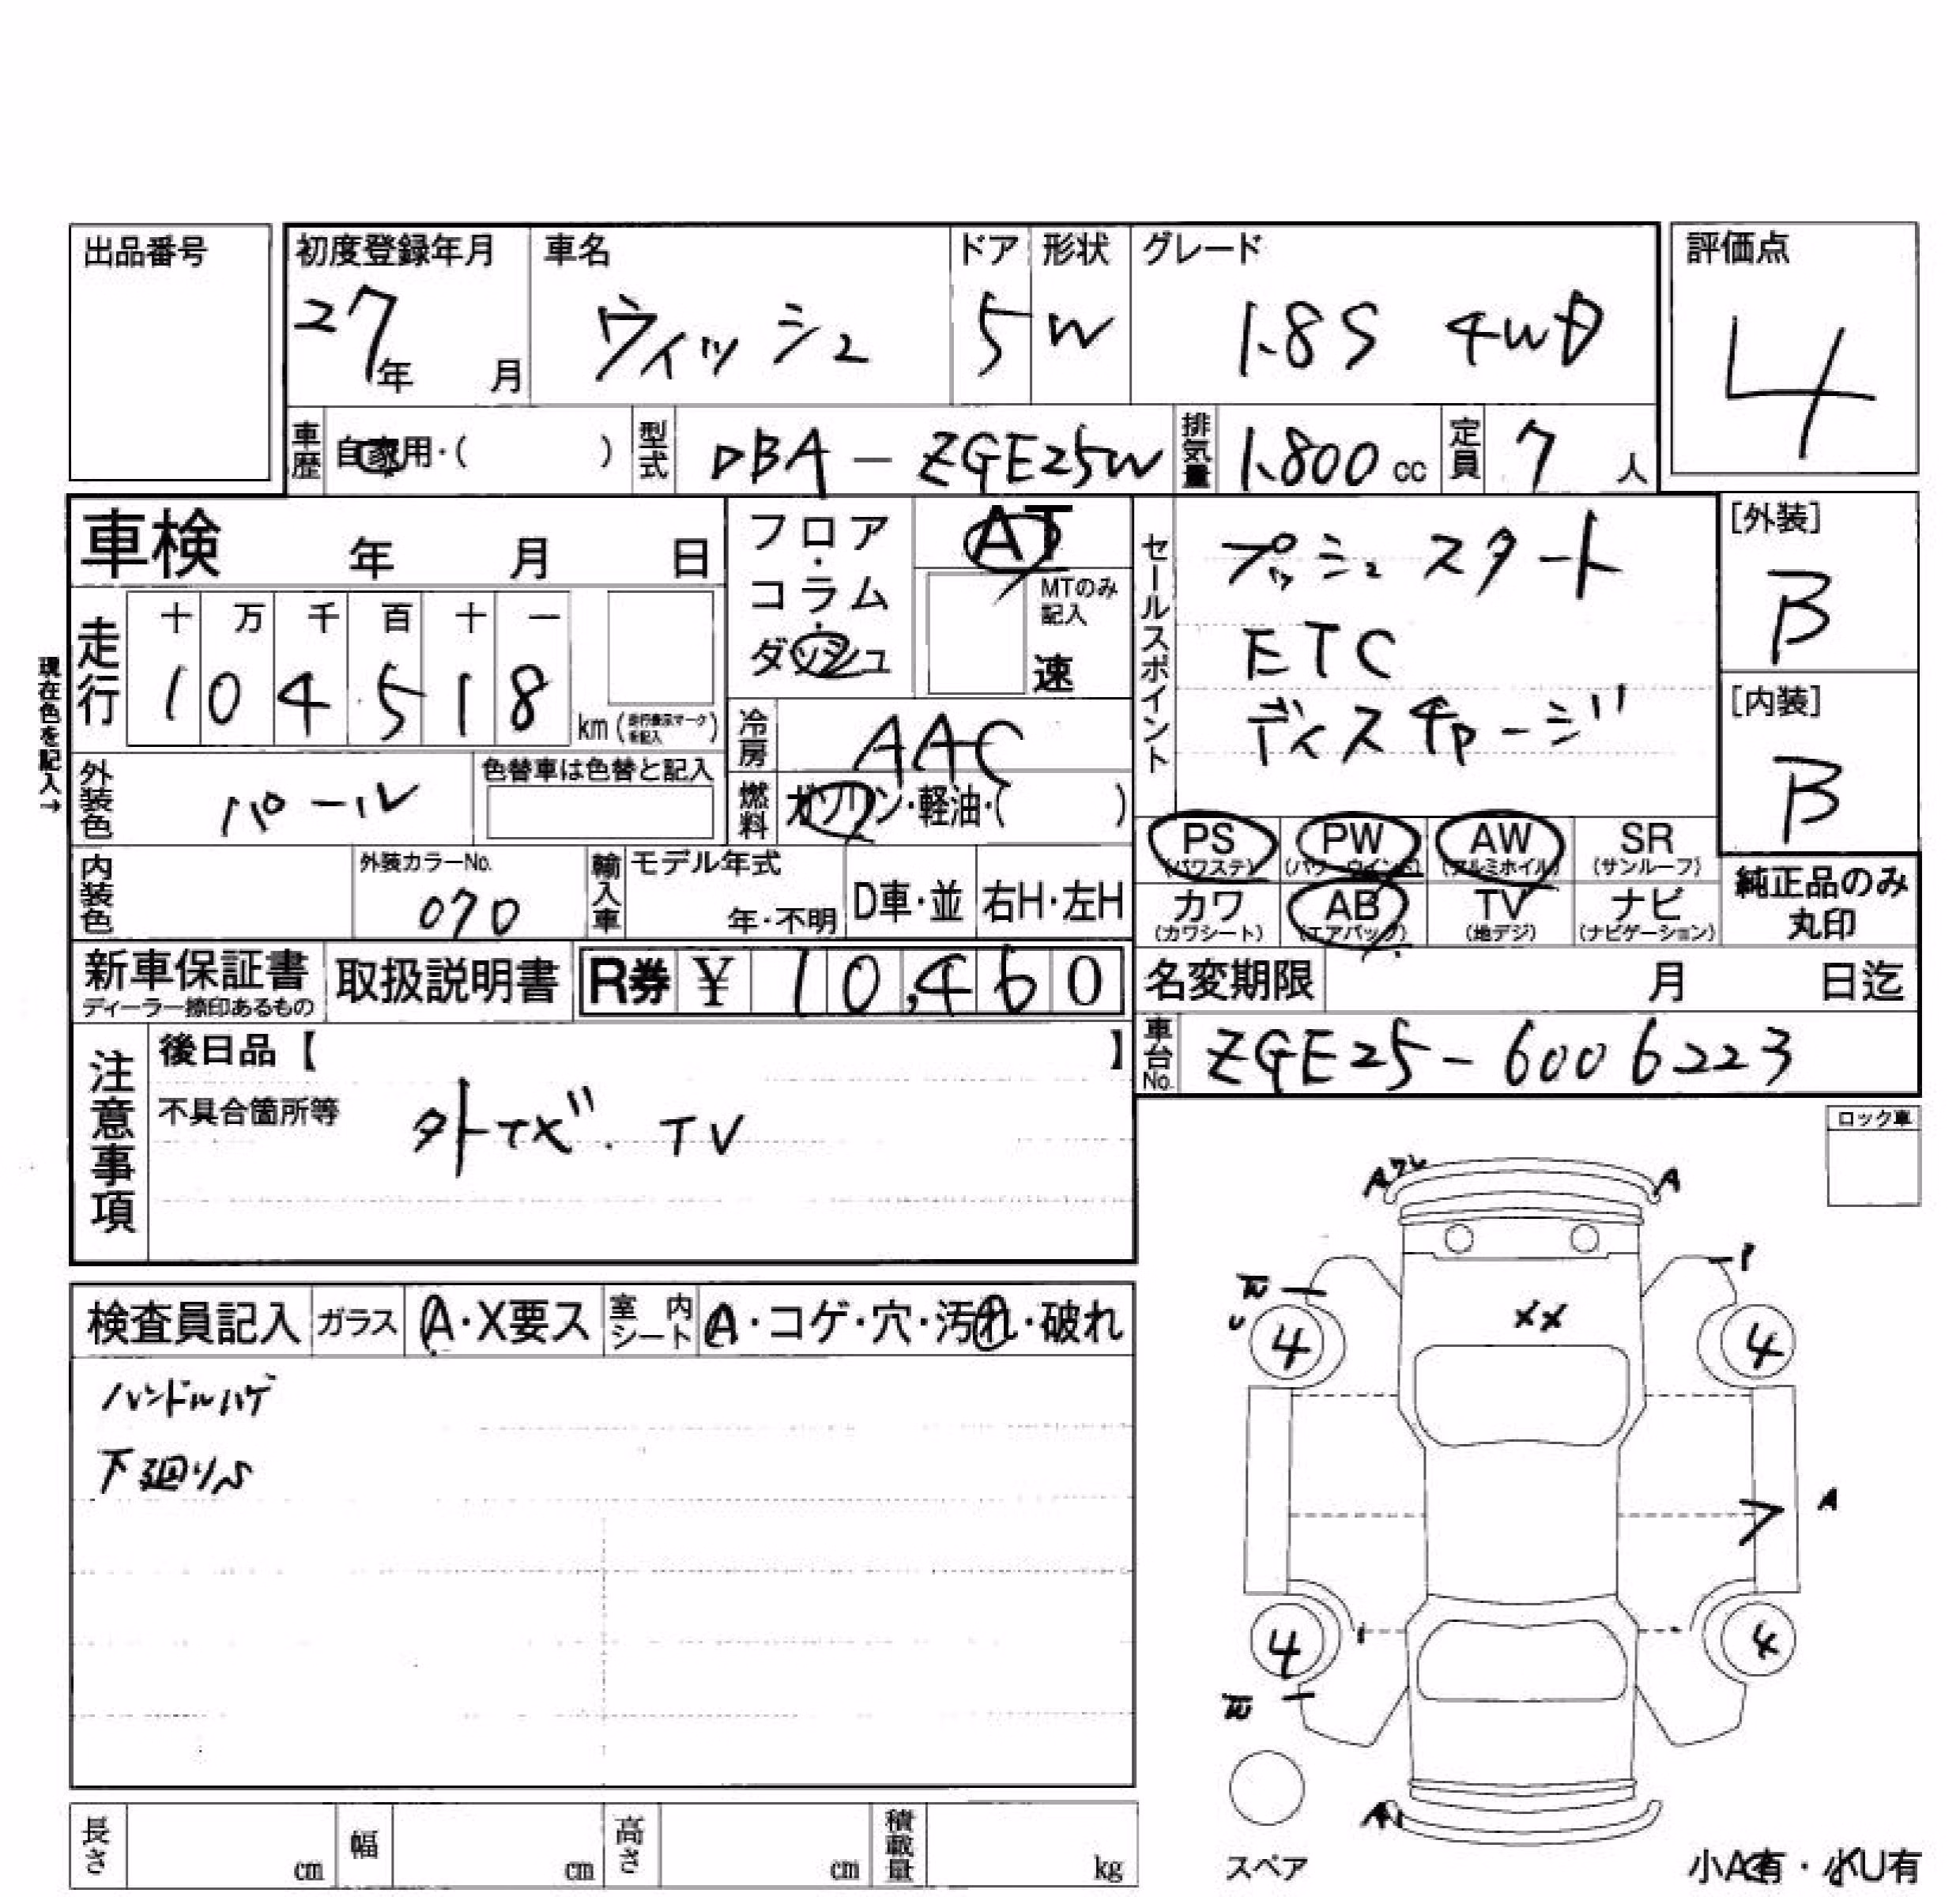 出品番号
初度登録年月 車名 ドア 形状 グレード 評価点
27年 月 ウィッシュ 5 W 1.8S 4WD 4
車歴 自家用・( ) 型式 DBA-ZGE25W 排気量 1.800cc 定員 7人
車検 年 月 日
フロア・コラム・ダッシュ
AT
MTのみ記入
速
セールスポイント
プッシュスタート
ETC
ディスチャージ
[外装]
B
[内装]
B
現在色を記入→
走行 十 万 千 百 十 一
1 0 4 5 1 8 km(走行表示マーク を記入)
冷房 AAC
燃料 ガソリン・軽油・( )
外装色 パール 色替車は色替と記入
PS(パワステ) PW(パワーウインド) AW(アルミホイル) SR(サンルーフ)
カワ(カワシート) AB(エアバック) TV(地デジ) ナビ(ナビゲーション)
純正品のみ丸印
内装色 外装カラーNo. 070 輸入車 モデル年式 年・不明 D車・並 右H・左H
新車保証書 ディーラー捺印あるもの 取扱説明書 R券 ¥ 10,460
名変期限 月 日迄
車台No. ZGE25-6006223
注意事項
後日品【 】
不具合箇所等 外ナビ.TV
ロック車
検査員記入 ガラス A・X要ス 室内シート A・コゲ・穴・汚れ・破れ
ハンドルハゲ
下廻りS
A ワレ A
U
XX
4 4
A
4 4
A1
スペア
小A有・小U有
長さ cm 幅 cm 高さ cm 積載量 kg